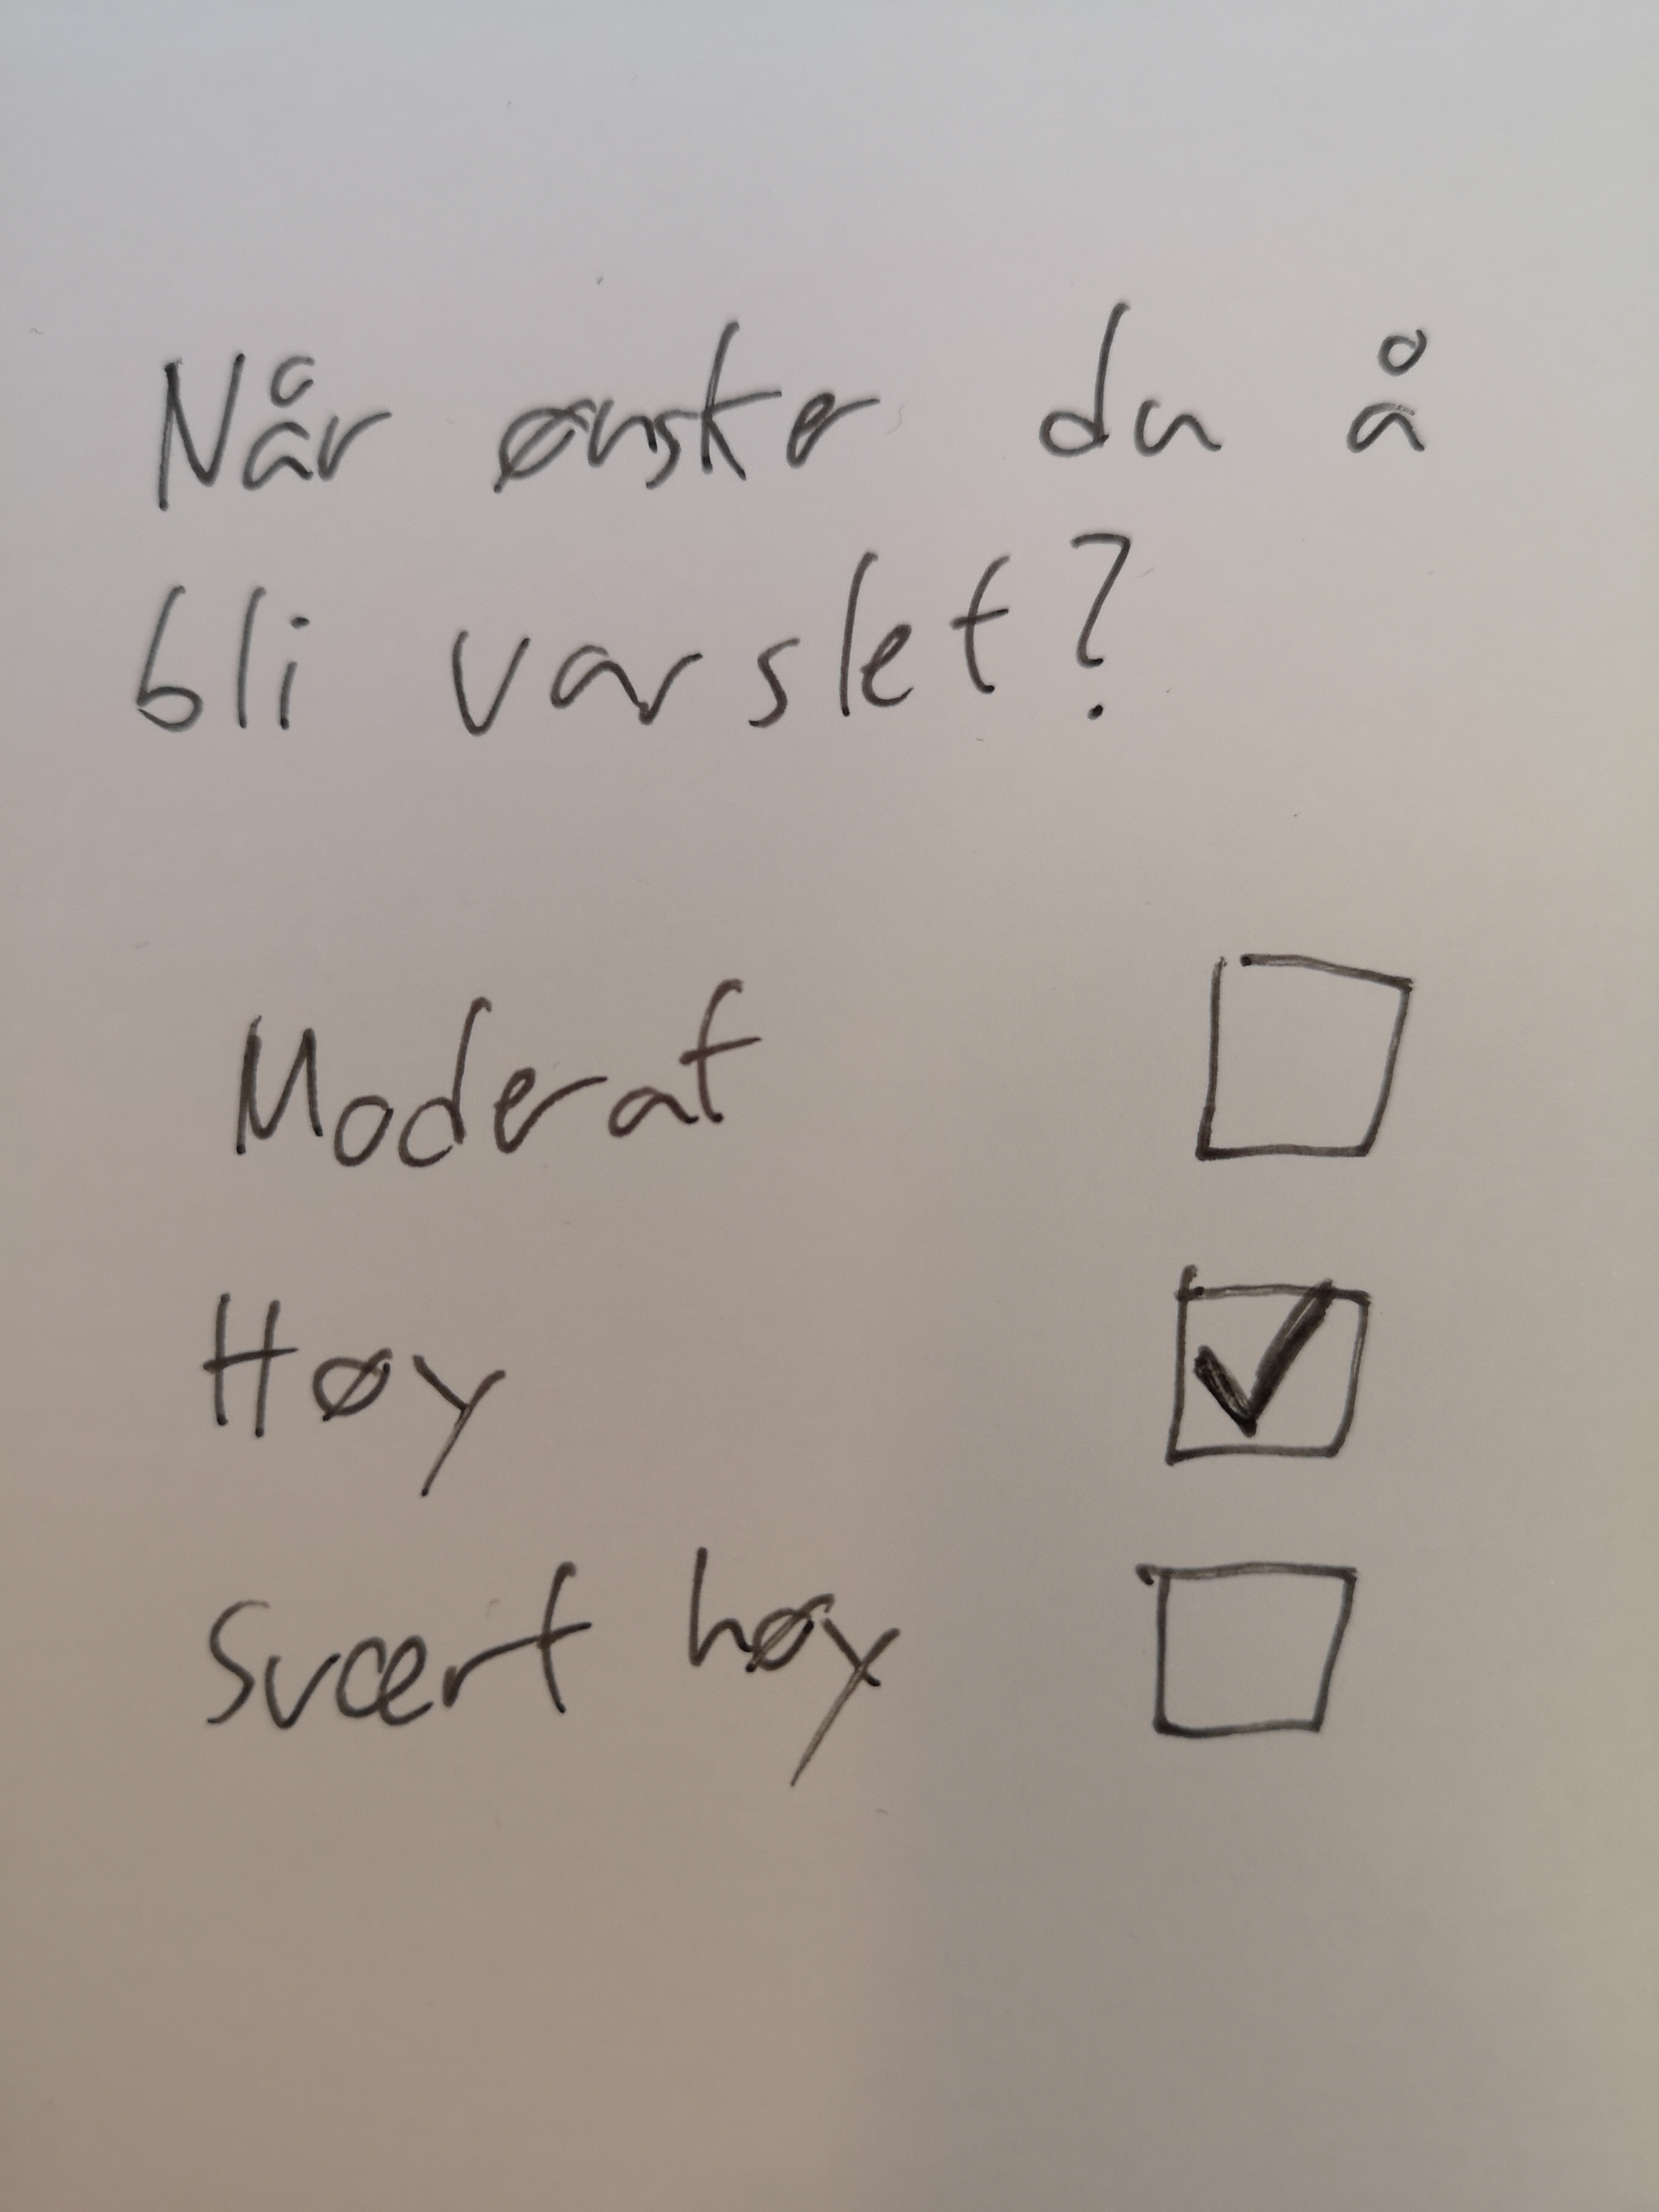 Når ønsker du å
bli varslet?
Moderat
Høy
Svært høy